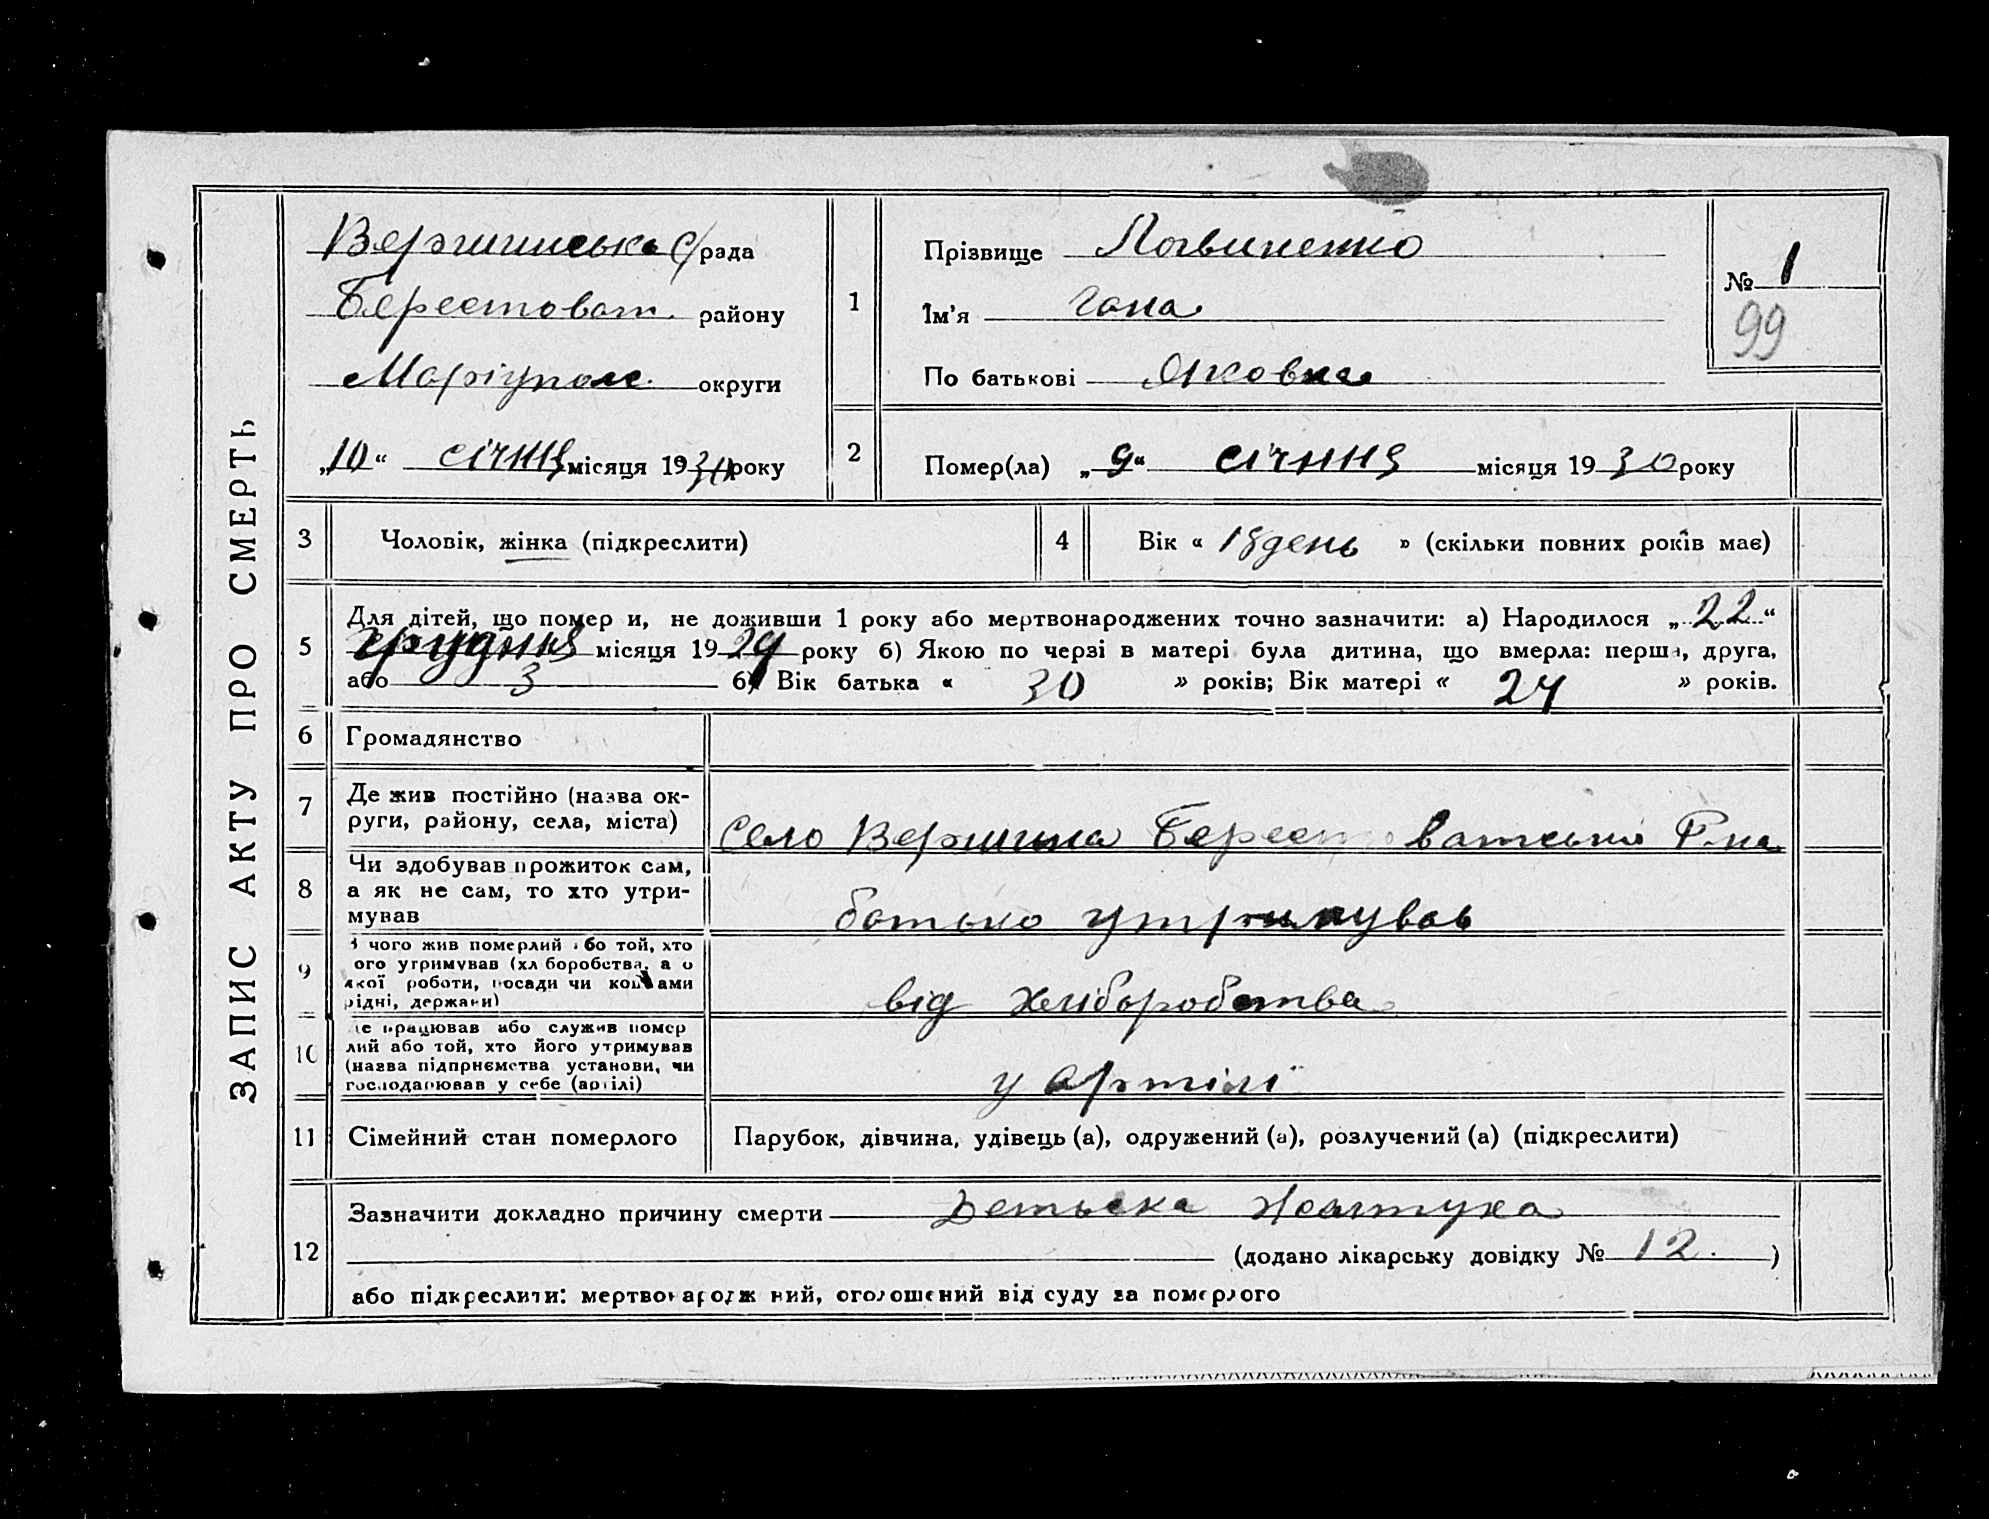 ЗАПИС АКТУ ПРО СМЕРТЬ
Вершинська С/рада
Берестоват. району
Маріупол. округи
„10“ січня місяця 1930 року
1
Прізвище Логвиненко
Ім'я Гана
По батькові Яковна
№ 1
99
2
Помер(ла) „9“ січня місяця 1930 року
3
Чоловік, жінка (підкреслити)
4
Вік « 18 день » (скільки повних років має)
5
Для дітей, що помер и, не доживши 1 року або мертвонароджених точно зазначити: а) Народилося „22“
грудня місяця 1929 року б) Якою по черзі в матері була дитина, що вмерла: перша, друга,
або 3 б) Вік батька « 30 » років; Вік матері « 24 » років.
6
Громадянство
7
Де жив постійно (назва ок-
руги, району, села, міста)
Село Вершина Берестоватський Р-на
8
Чи здобував прожиток сам,
а як не сам, то хто утри-
мував
батько утримував
9
чого жив померлий або той, хто
ого утримував (хл боробства, а о
якої роботи, посади чи коштами
рідні, держави)
від хліборобства
10
де працював або служив помер
лий або той, хто його утримував
(назва підприємства установи, чи
господарював у себе (артілі)
у артілі
11
Сімейний стан померлого
Парубок, дівчина, удівець (а), одружений (а), розлучений (а) (підкреслити)
12
Зазначити докладно причину смерти Детьска Жолтуха
(додано лікарську довідку № 12. )
або підкреслити: мертвонароджений, оголошений від суду за померлого